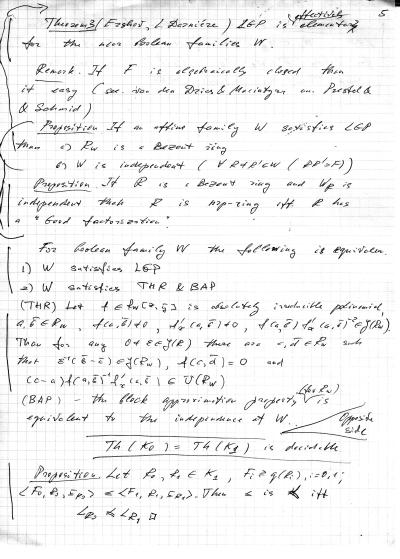 5
Theorem 3 (Ershov, L. Darnière) LGP is effectively elementary
for the near boolean families W.
Remark. If F is algebraically closed then
it easy (see. van den Dries & Macintyre an. Prestel &
& Schmid)
Proposition If an affine family W satisfies LGP
then a) R_W is a Bezout ring
b) W is independent (∀ R≠R'∈W (RR'=F))
Proposition. If R is a Bezout ring and W_R is
independent then R is nrp-ring iff R has
a "Good factorization".
For boolean family W the following is equivalen.
1) W satisfies LGP
2) W satisfies THR & BAP
(THR) Let f ∈ R_W[x, ȳ] is absolutely irreducible polinomial,
then for any 0≠ε∈J(R) there are c, d̄ ∈ R_W such
that
and
(BAP) - the block approximation property (for R_W) is
equivalent to the independence of W.
Opposite
side
Th(K_0) = Th(K_1) is decidable
Proposition. Let R_0, R_1 ∈ K_1, F_i = q(R_i), i=0,1;
Then ≤ is iff